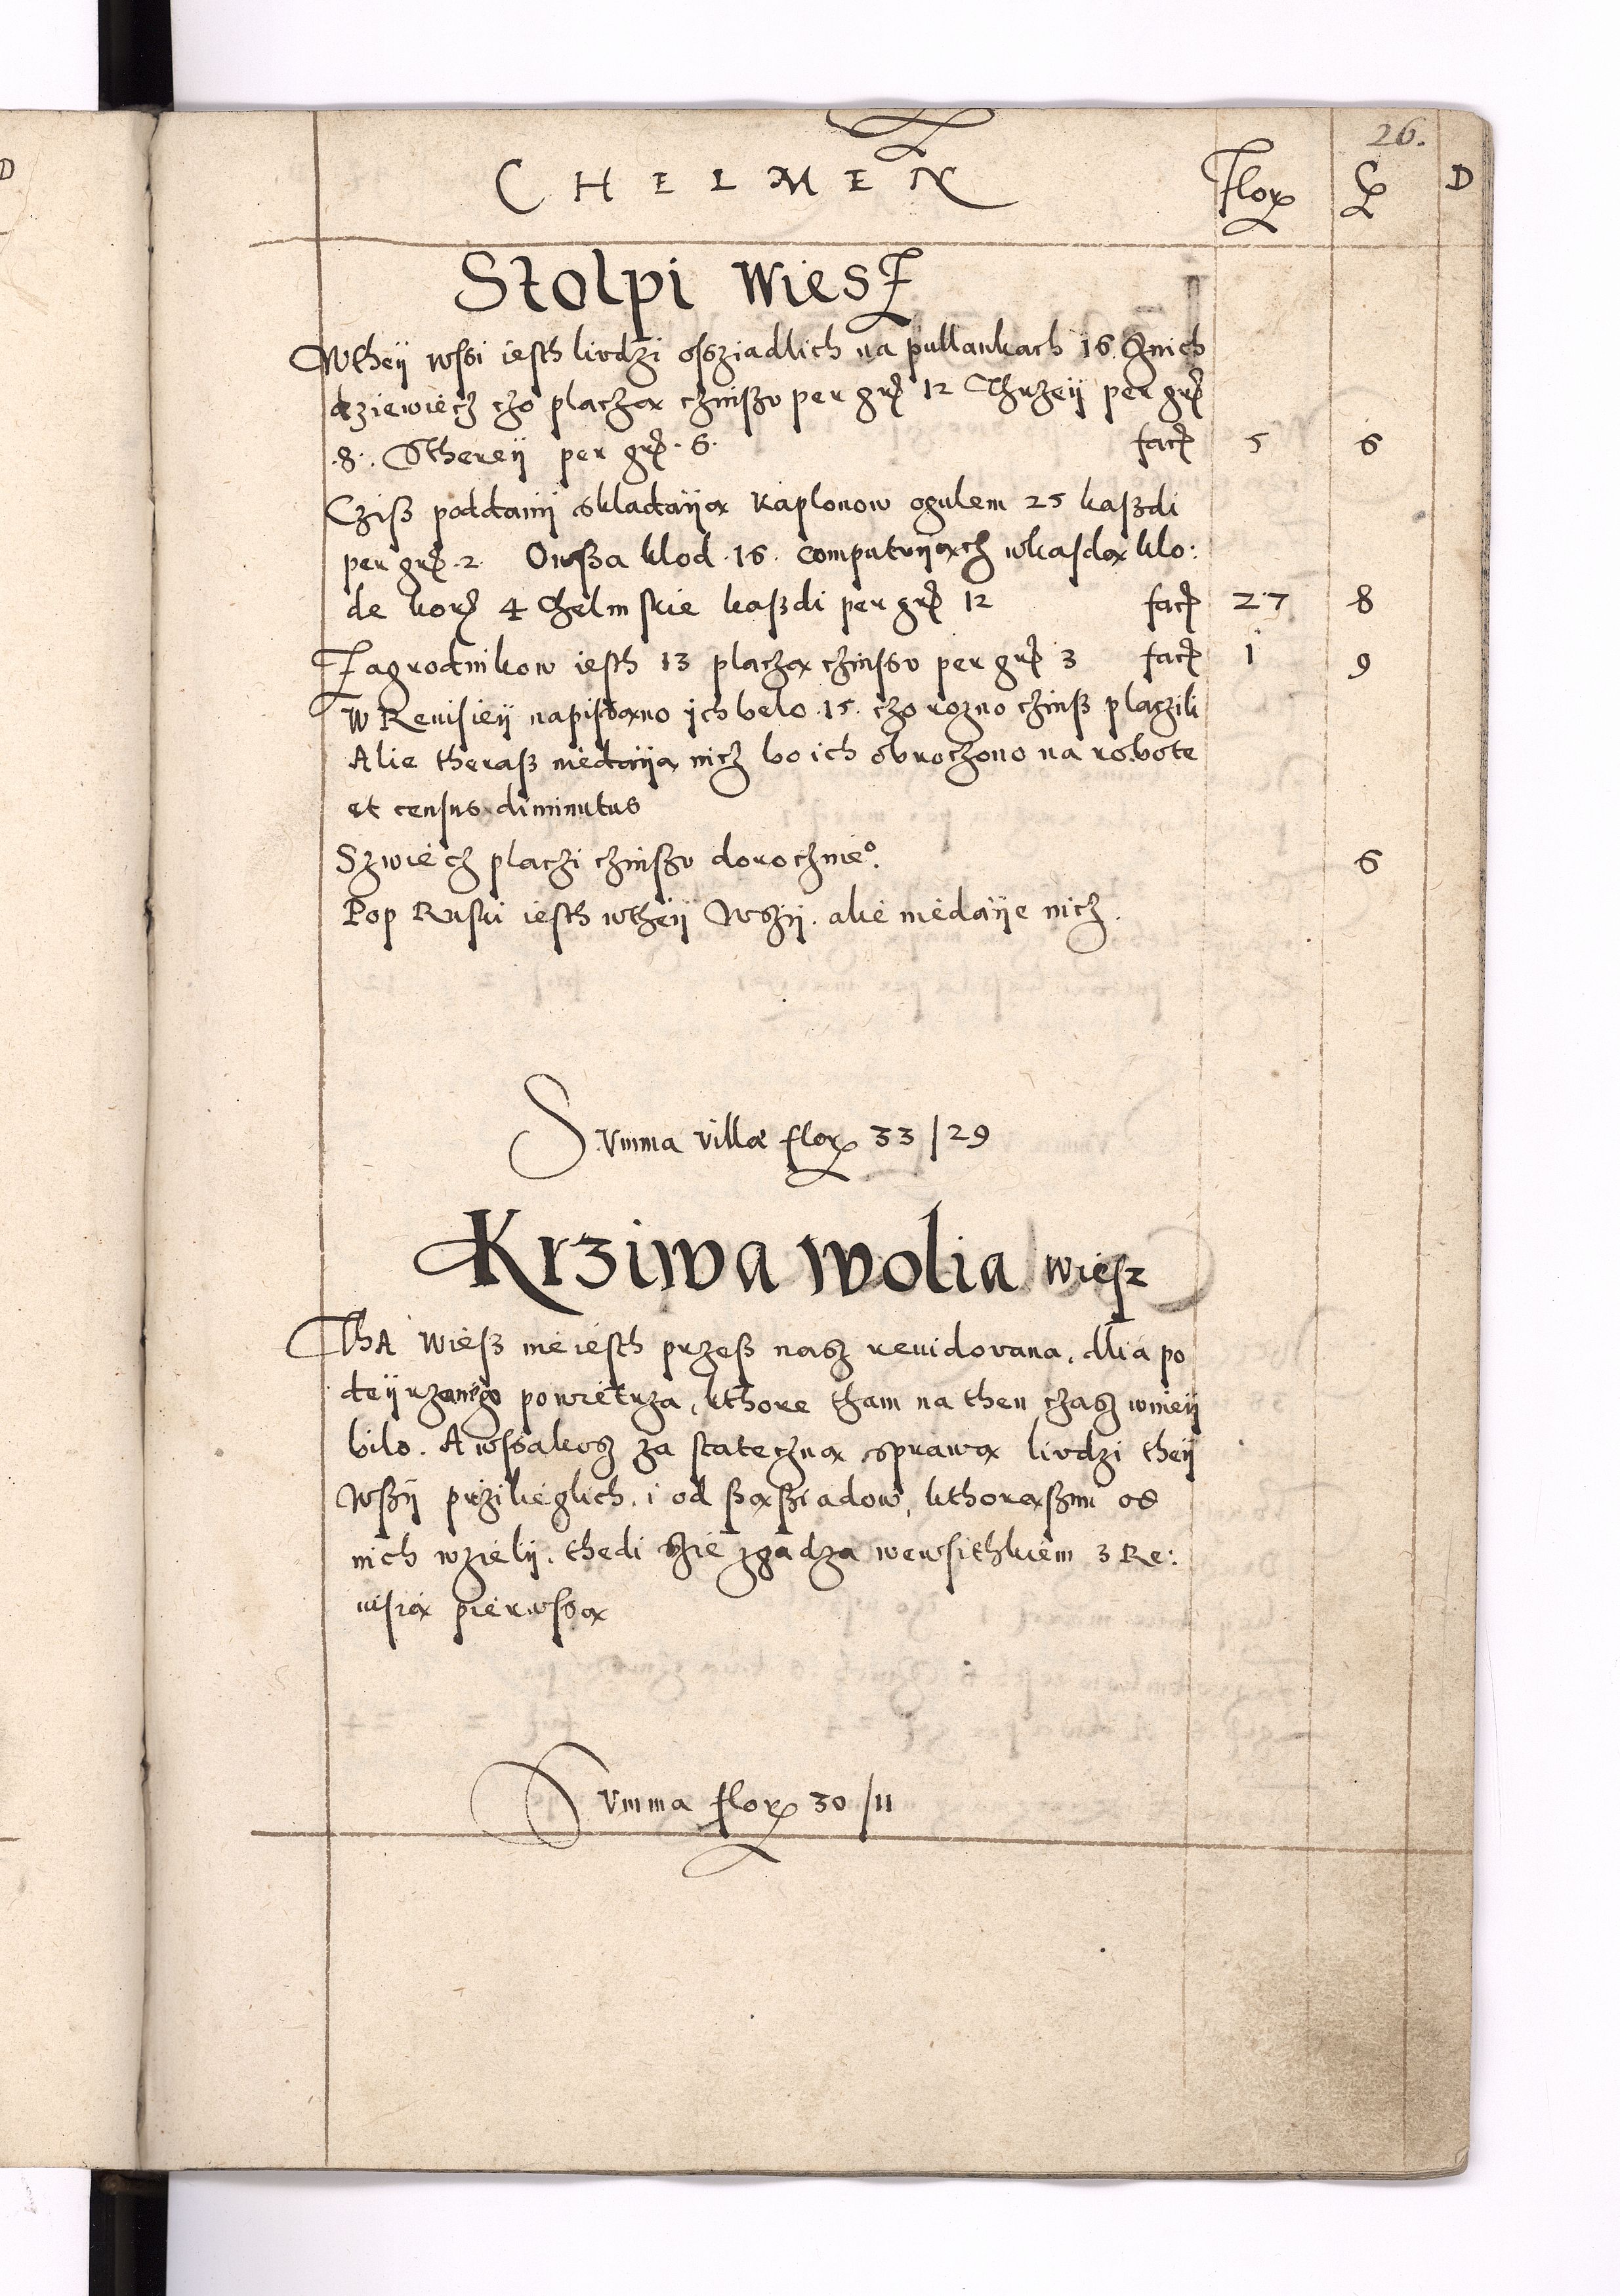 26.
CHELMEN Flor G D
Stolpi wiesz
Wtheÿ wssi iesth liudzi ossziadlich na pullankach 16. Znich
dziewiecz czo placzą czinszu per gr 12 Thrzeÿ per gr
.8. Czthereÿ per gr. 6. facit 5 6
Cziß poddanÿ skladaÿą kaplonow ogulem 25 kaßdi
per gr. 2. Owßa klod .16. computuÿącz wkasdą klo:
de kor 4 Chelmskie kaßdi per gr 12 facit 27 8
Zagrodnikow iesth 13 placzą czinssu per gr 3 facit 1 9
W Reuisieÿ napisano ych belo .15. czo rozno czinß placzili
Alie theraß niedaÿą nicz bo ich obroczono na robote
et census diminutus
Szwiecz placzi czinszu dorocznie°. 6
Pop Ruski iesth wtheÿ Wszÿ. alie niedaÿe nicz.
Summa villæ flor 33/29
Krziwa wolia wiesz
Tha wieß nie iesth przeß nasz reuidowana, dlia po
deÿrzanego powietrza, kthore tham na then czasz wnieÿ
bilo. A wssakosz za stateczną sprawą liudzi theÿ
Wszÿ przilieglich, i od sąsziadow, kthorąszmi od
nich wzielÿ. thedi szie zgadza wewsithkiem z Re:
uisią pierwssą
Summa flor 30/11